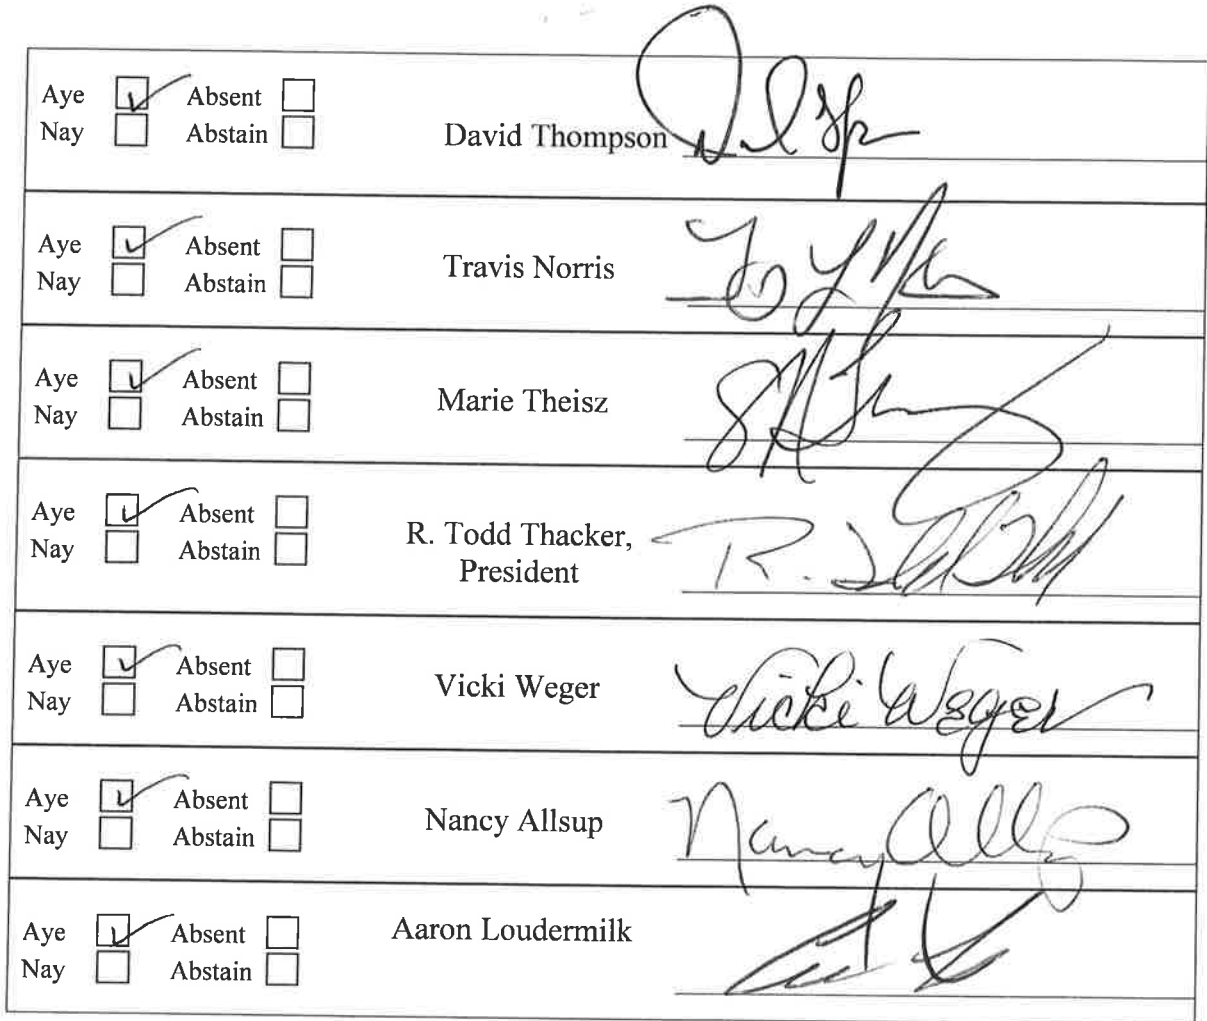 Aye Absent
Nay Abstain
David Thompson
Aye Absent
Nay Abstain
Travis Norris
Aye Absent
Nay Abstain
Marie Theisz
Aye Absent
Nay Abstain
R. Todd Thacker,
President
Aye Absent
Nay Abstain
Vicki Weger
Vicki Weger
Aye Absent
Nay Abstain
Nancy Allsup
Nancy
Aye Absent
Nay Abstain
Aaron Loudermilk